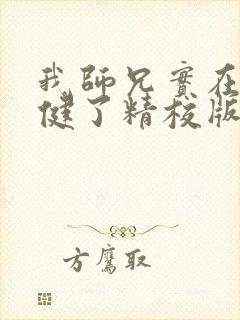 我師兄實在
健了精校版
方鷹取